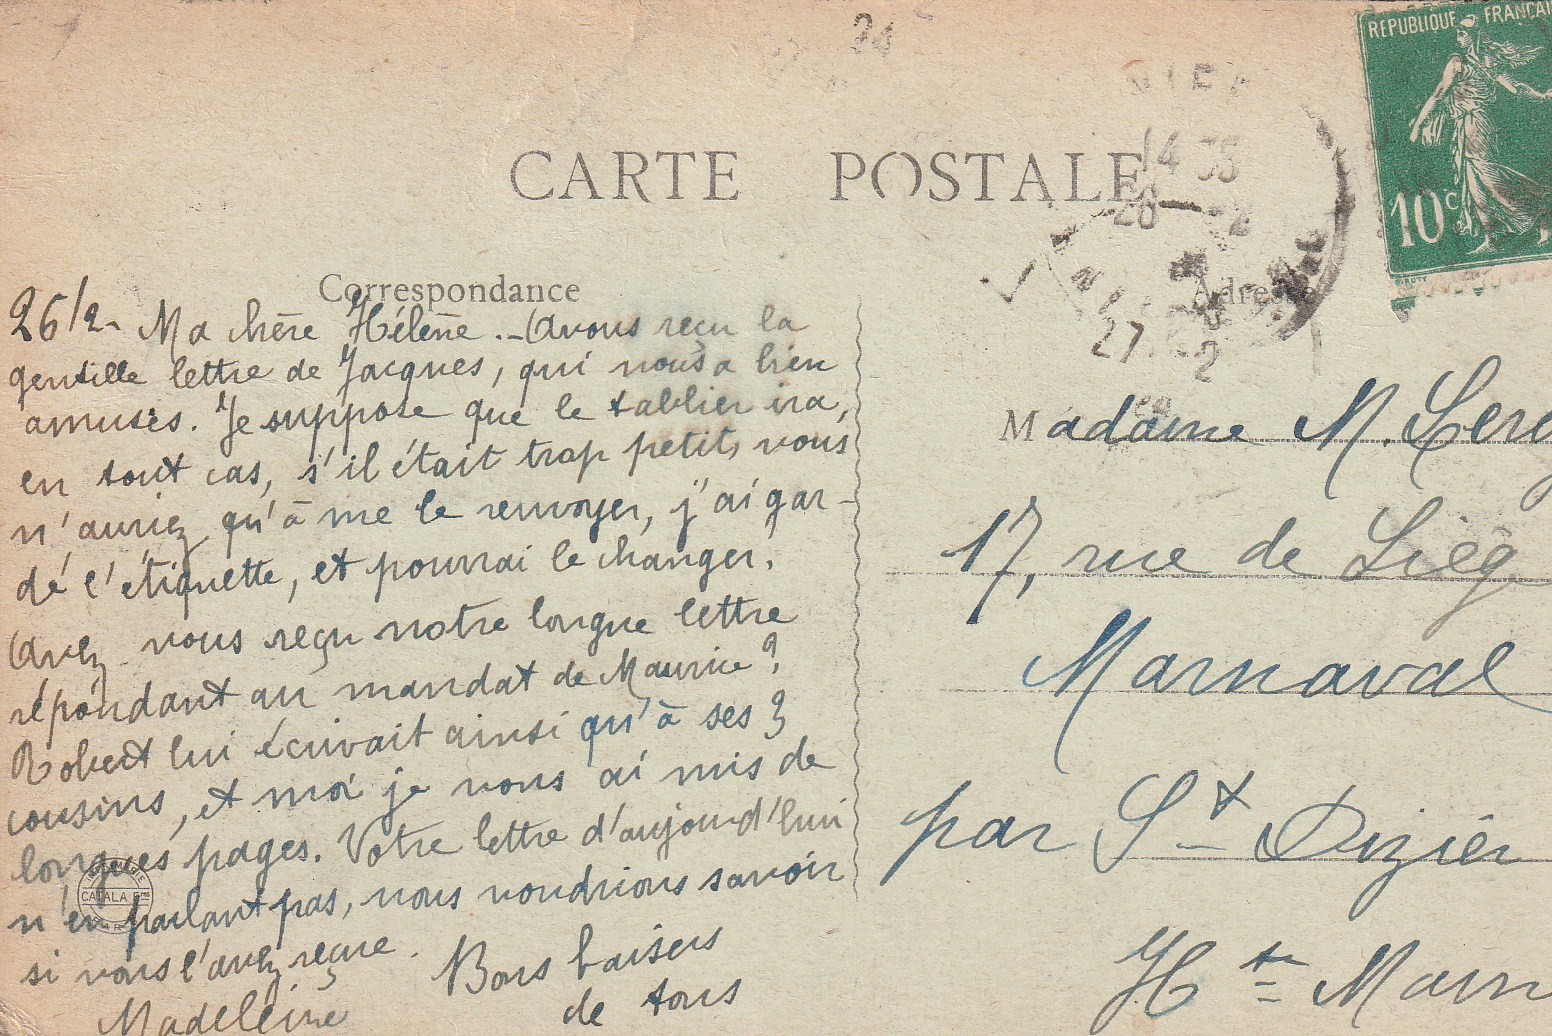 24
REPUBLIQUE FRANCAI
10c
CARTE POSTALE
14 35
26 -2
27 2
Correspondance
Adresse
26/2 - Ma chère Hélène. - Avons reçu la
gentille lettre de Jacques, qui nous a bien
amusés. Je suppose que le tablier ira,
en tout cas, s'il était trop petit, vous
n'auriez qu'à me le renvoyer, j'ai gar-
dé l'étiquette, et pourrai le changer.
Avez-vous reçu notre longue lettre
répondant au mandat de Maurice?
Robert lui écrivait ainsi qu'à ses 3
cousins, et moi je vous ai mis de
longues pages. Votre lettre d'aujourd'hui
n'en parlant pas, nous voudrions savoir
si vous l'avez reçue. Bons baisers
de tous
Madeleine
CATALA Fres
Madame M. Lere
17, rue de Liég
Marnaval
par St-Dizier
Hte Marn